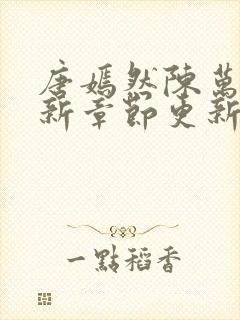 唐嫣然陳萬
新章節更新
一點稻香